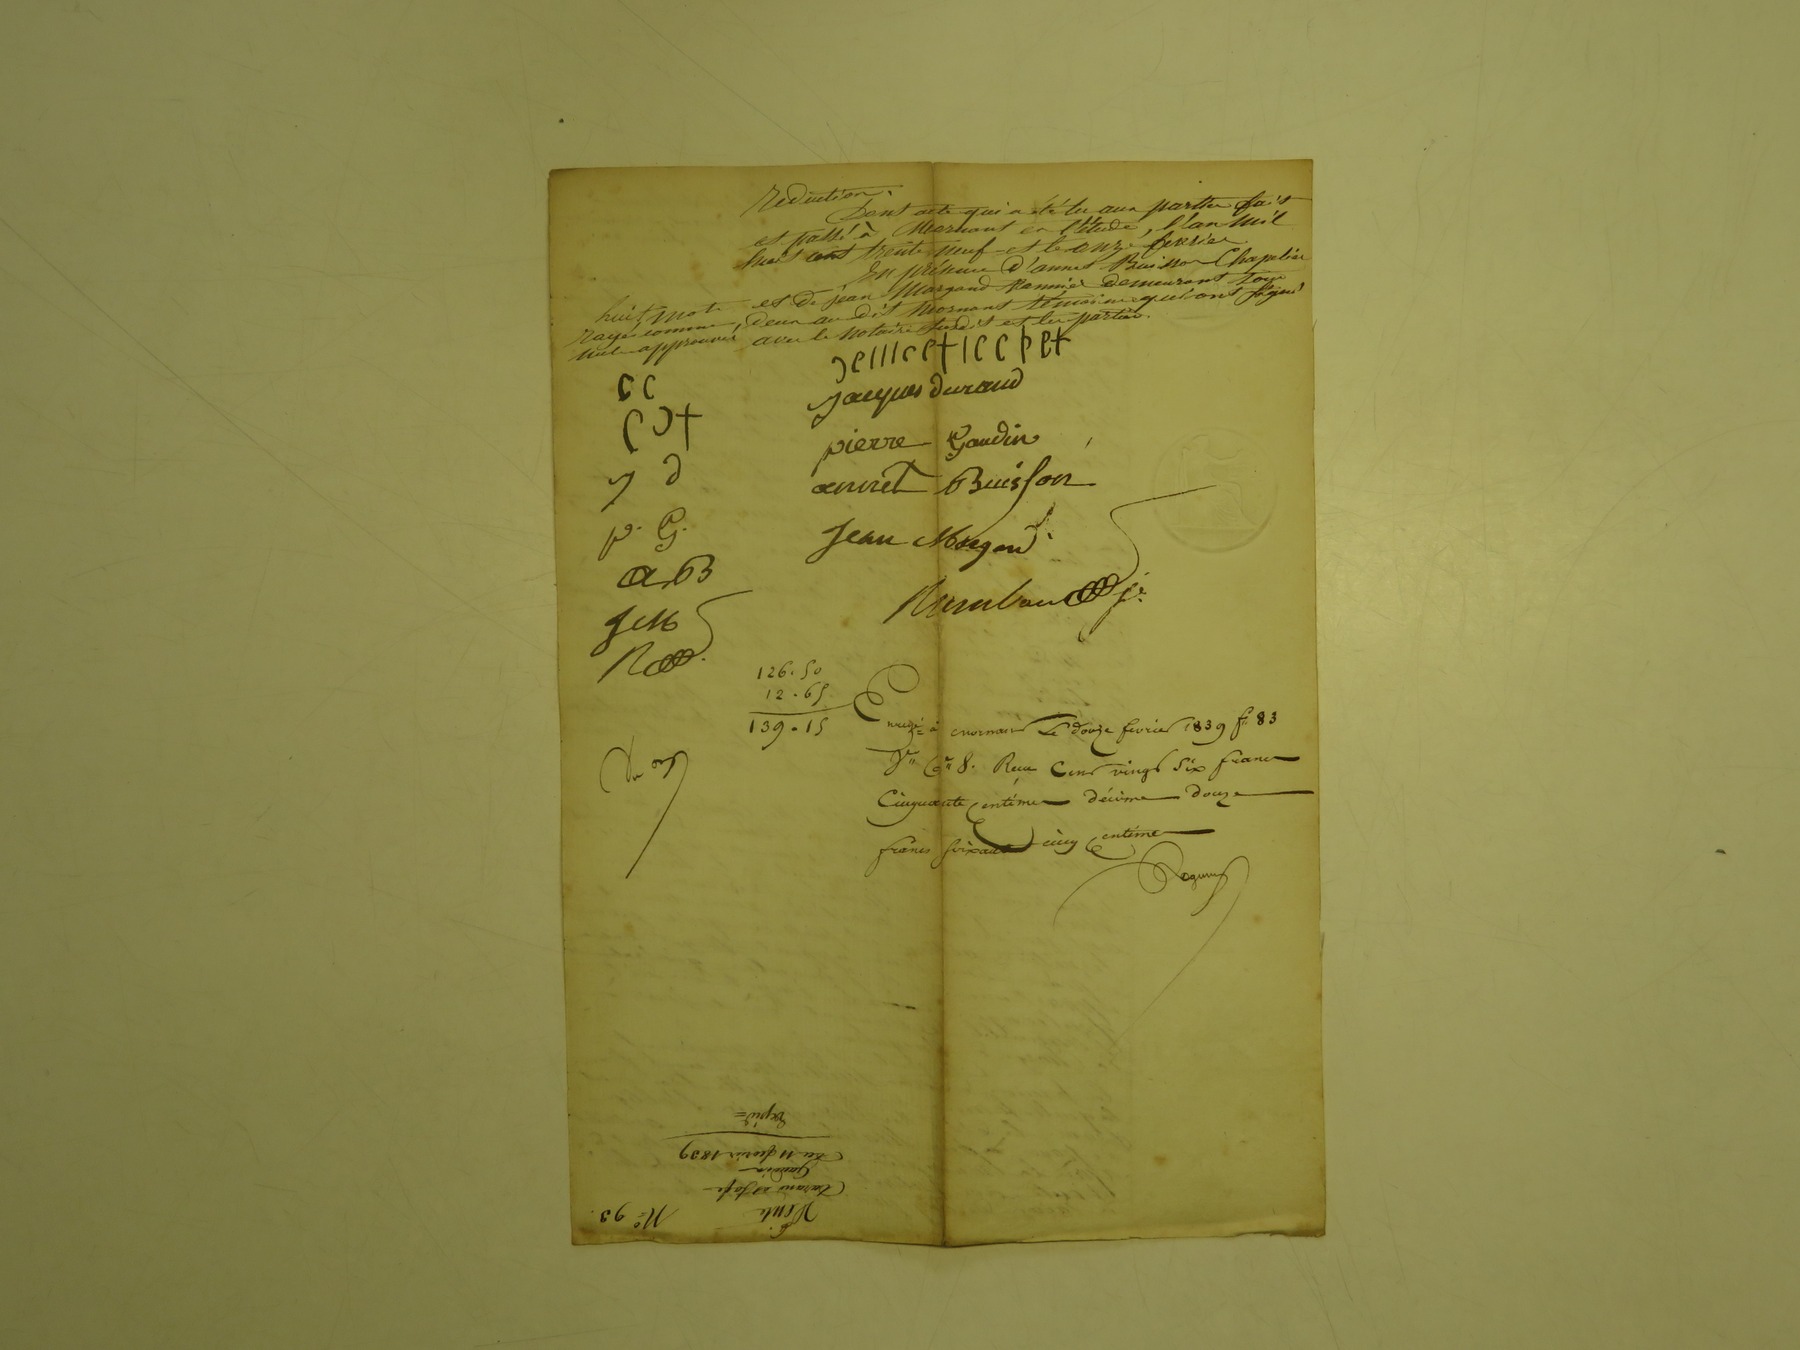 Réduction.
Dont acte qui a été lu aux parties fait
et passé à Mornant en l'étude, l'an mil
huit cent trente neuf et le onze fevrier
En présence d'annet Buisson Chapelier
et de jean Morgand demeurant tous
deux au dit Mornant témoins qui ont signé
avec le notaire susdit et les parties.
huit mots
rayés comme
nuls approuvés
jacques durand
pierre Gaudin
annet Buisson
Jean Morgand
j d
p. G.
a B
J M
126.50
12.65
139.15
Enregé à mornant le douze fevrier 1839 f° 83
Vo Ce 8. Reçu Cent vingt Six francs
Cinquante Centimes décime douze
francs soixante cinq Centimes
N° 93.
Vente
durand
Gaudin
du 11 fevrier 1839
Expid